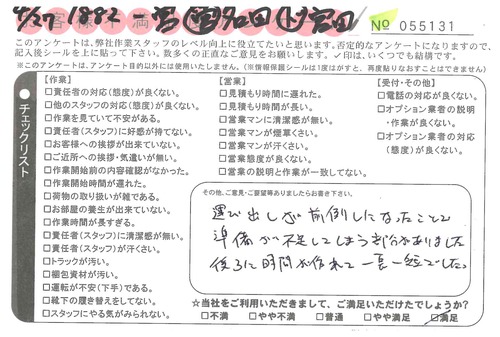 4/27 1882
№ 055131
このアンケートは、弊社作業スタッフのレベル向上に役立てたいと思います。否定的なアンケートになりますので、
記入後シールを上に貼って下さい。数多くの正直なご意見をお願いします。✓印は、いくつでも結構です。
※このアンケートは、アンケート目的以外には使用いたしません。(※情報保護シールは1度はがすと、再度貼りなおすことはできません)
●チェックリスト
【作業】
□責任者の対応(態度)が良くない。
□他のスタッフの対応(態度)が良くない。
□作業を見ていて不安がある。
□責任者(スタッフ)に好感が持てない。
□お客様への挨拶が出来ていない。
□ご近所への挨拶・気遣いが無い。
□作業開始前の内容確認がなかった。
□作業開始時間が遅れた。
□荷物の取り扱いが雑である。
□お部屋の養生が出来ていない。
□作業時間が長すぎる。
□責任者(スタッフ)に清潔感が無い。
□責任者(スタッフ)が汗くさい。
□トラックが汚い。
□梱包資材が汚い。
□運転が不安(下手)である。
□靴下の履き替えをしてない。
□スタッフにやる気がみられない。
【営業】
□見積もり時間に遅れた。
□見積もり時間が長い。
□営業マンに清潔感が無い。
□営業マンが煙草くさい。
□営業マンが汗くさい。
□営業態度が良くない。
□営業の説明と作業が一致してない。
【受付・その他】
□電話の対応が良くない。
□オプション業者の説明
・作業が良くない。
□オプション業者の対応
(態度)が良くない。
その他、ご意見・ご要望等ありましたらお書き下さい。
運び出しが前倒しになったことで
準備が不足してしまう部分がありました
後ろに時間が作れて一長一短でした。
☆当社をご利用いただきまして、ご満足いただけたでしょうか?
□不満 □やや不満 □普通 □やや満足 □満足